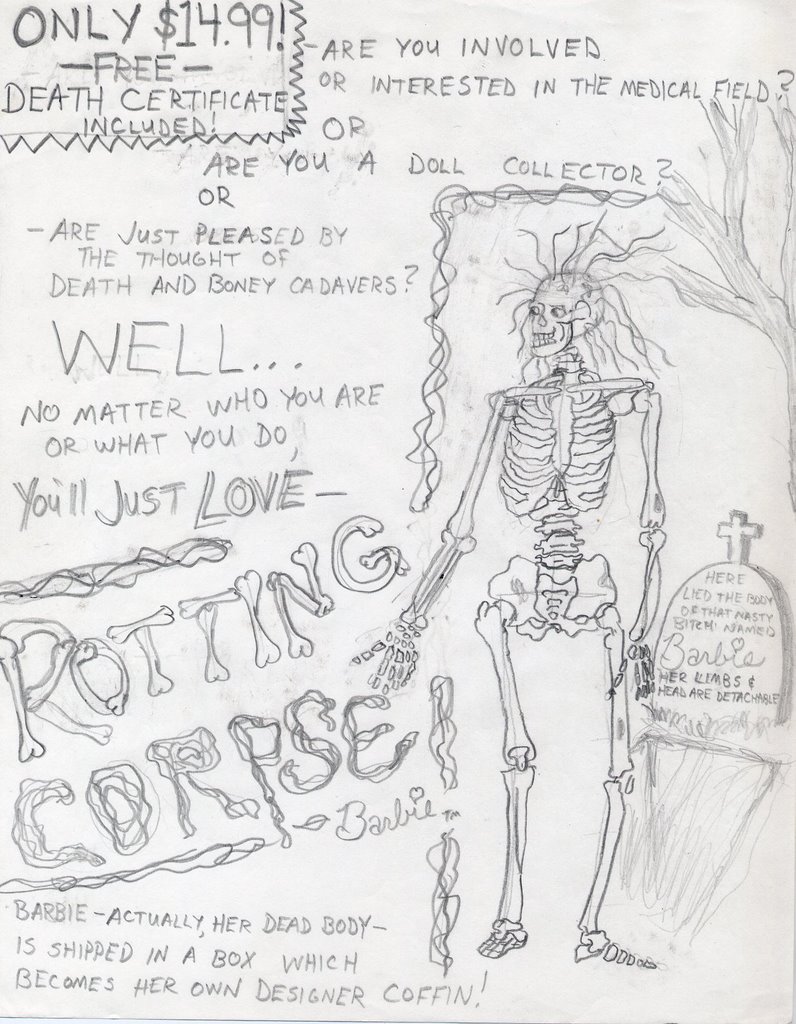 ONLY $14.99!
—FREE—
DEATH CERTIFICATE
INCLUDED!
-ARE YOU INVOLVED
OR INTERESTED IN THE MEDICAL FIELD?
OR
ARE YOU A DOLL COLLECTOR?
OR
-ARE JUST PLEASED BY
THE THOUGHT OF
DEATH AND BONEY CADAVERS?
WELL...
NO MATTER WHO YOU ARE
OR WHAT YOU DO,
You'll JUST LOVE—
ROTTING
CORPSE
-Barbie™
HERE
LIED THE BODY
OF THAT NASTY
BITCH NAMED
Barbie
HER LIMBS &
HEAD ARE DETACHABLE
BARBIE-ACTUALLY, HER DEAD BODY-
IS SHIPPED IN A BOX WHICH
BECOMES HER OWN DESIGNER COFFIN!